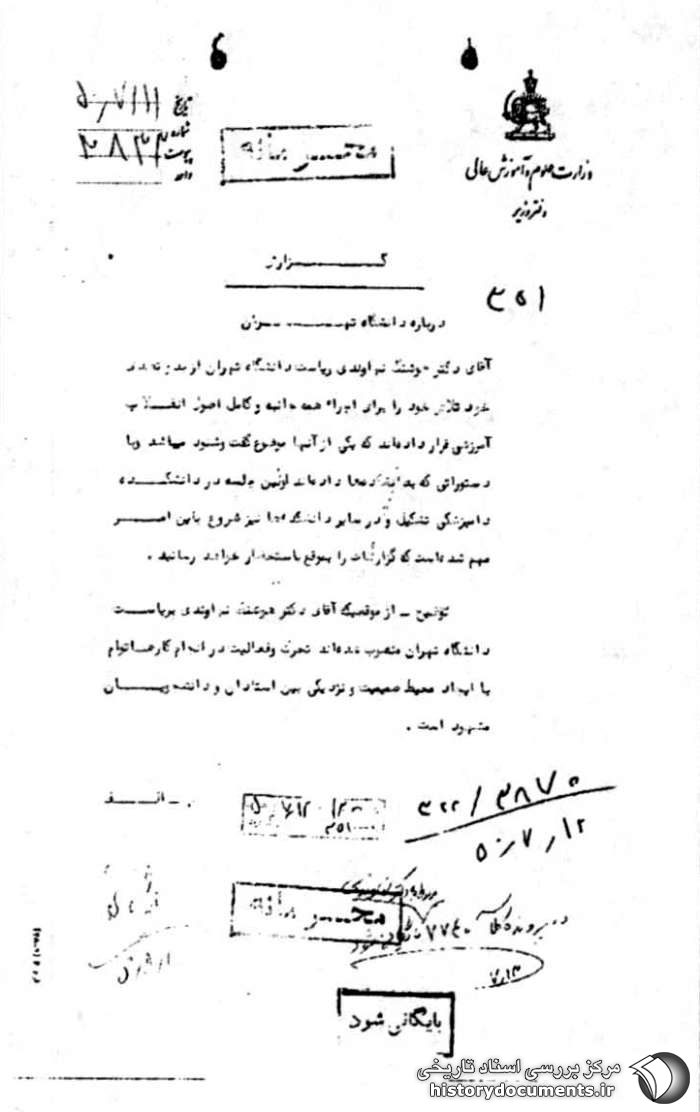 وزارت علوم و آموزش عالی
دفتر وزیر
تاریخ ۵۰٫۷٫۱۱
شماره
پیوست
محرمانه
گزارش
۳۵۱
درباره دانشگاه تهران
آقای دکتر هوشنگ نهاوندی ریاست دانشگاه تهران از بدو تصدی
خود تلاش خود را برای اجراء همه جانبه و کامل اصول انقلاب
آموزشی قرار داده‌اند که یکی از آنها موضوع گفت و شنود میباشد و با
دستوراتی که به دانشکده‌ها داده‌اند اولین جلسه در دانشکده
دامپزشکی تشکیل و در سایر دانشکده‌ها نیز شروع باین امر
مهم شده است که گزارشات را بموقع باستحضار خواهد رسانید .
توضیح ـ از موقعیکه آقای دکتر هوشنگ نهاوندی بریاست
دانشگاه تهران منصوب شده‌اند تحرک و فعالیت در انجام کارها توام
با ایجاد محیط صمیمیت و نزدیکی بین استادان و دانشجویان
مشهود است .
۳۲۲/۳۸۷۰
۵۰٫۷٫۱۲
محرمانه
بایگانی شود
مرکز بررسی اسناد تاریخی
historydocuments.ir